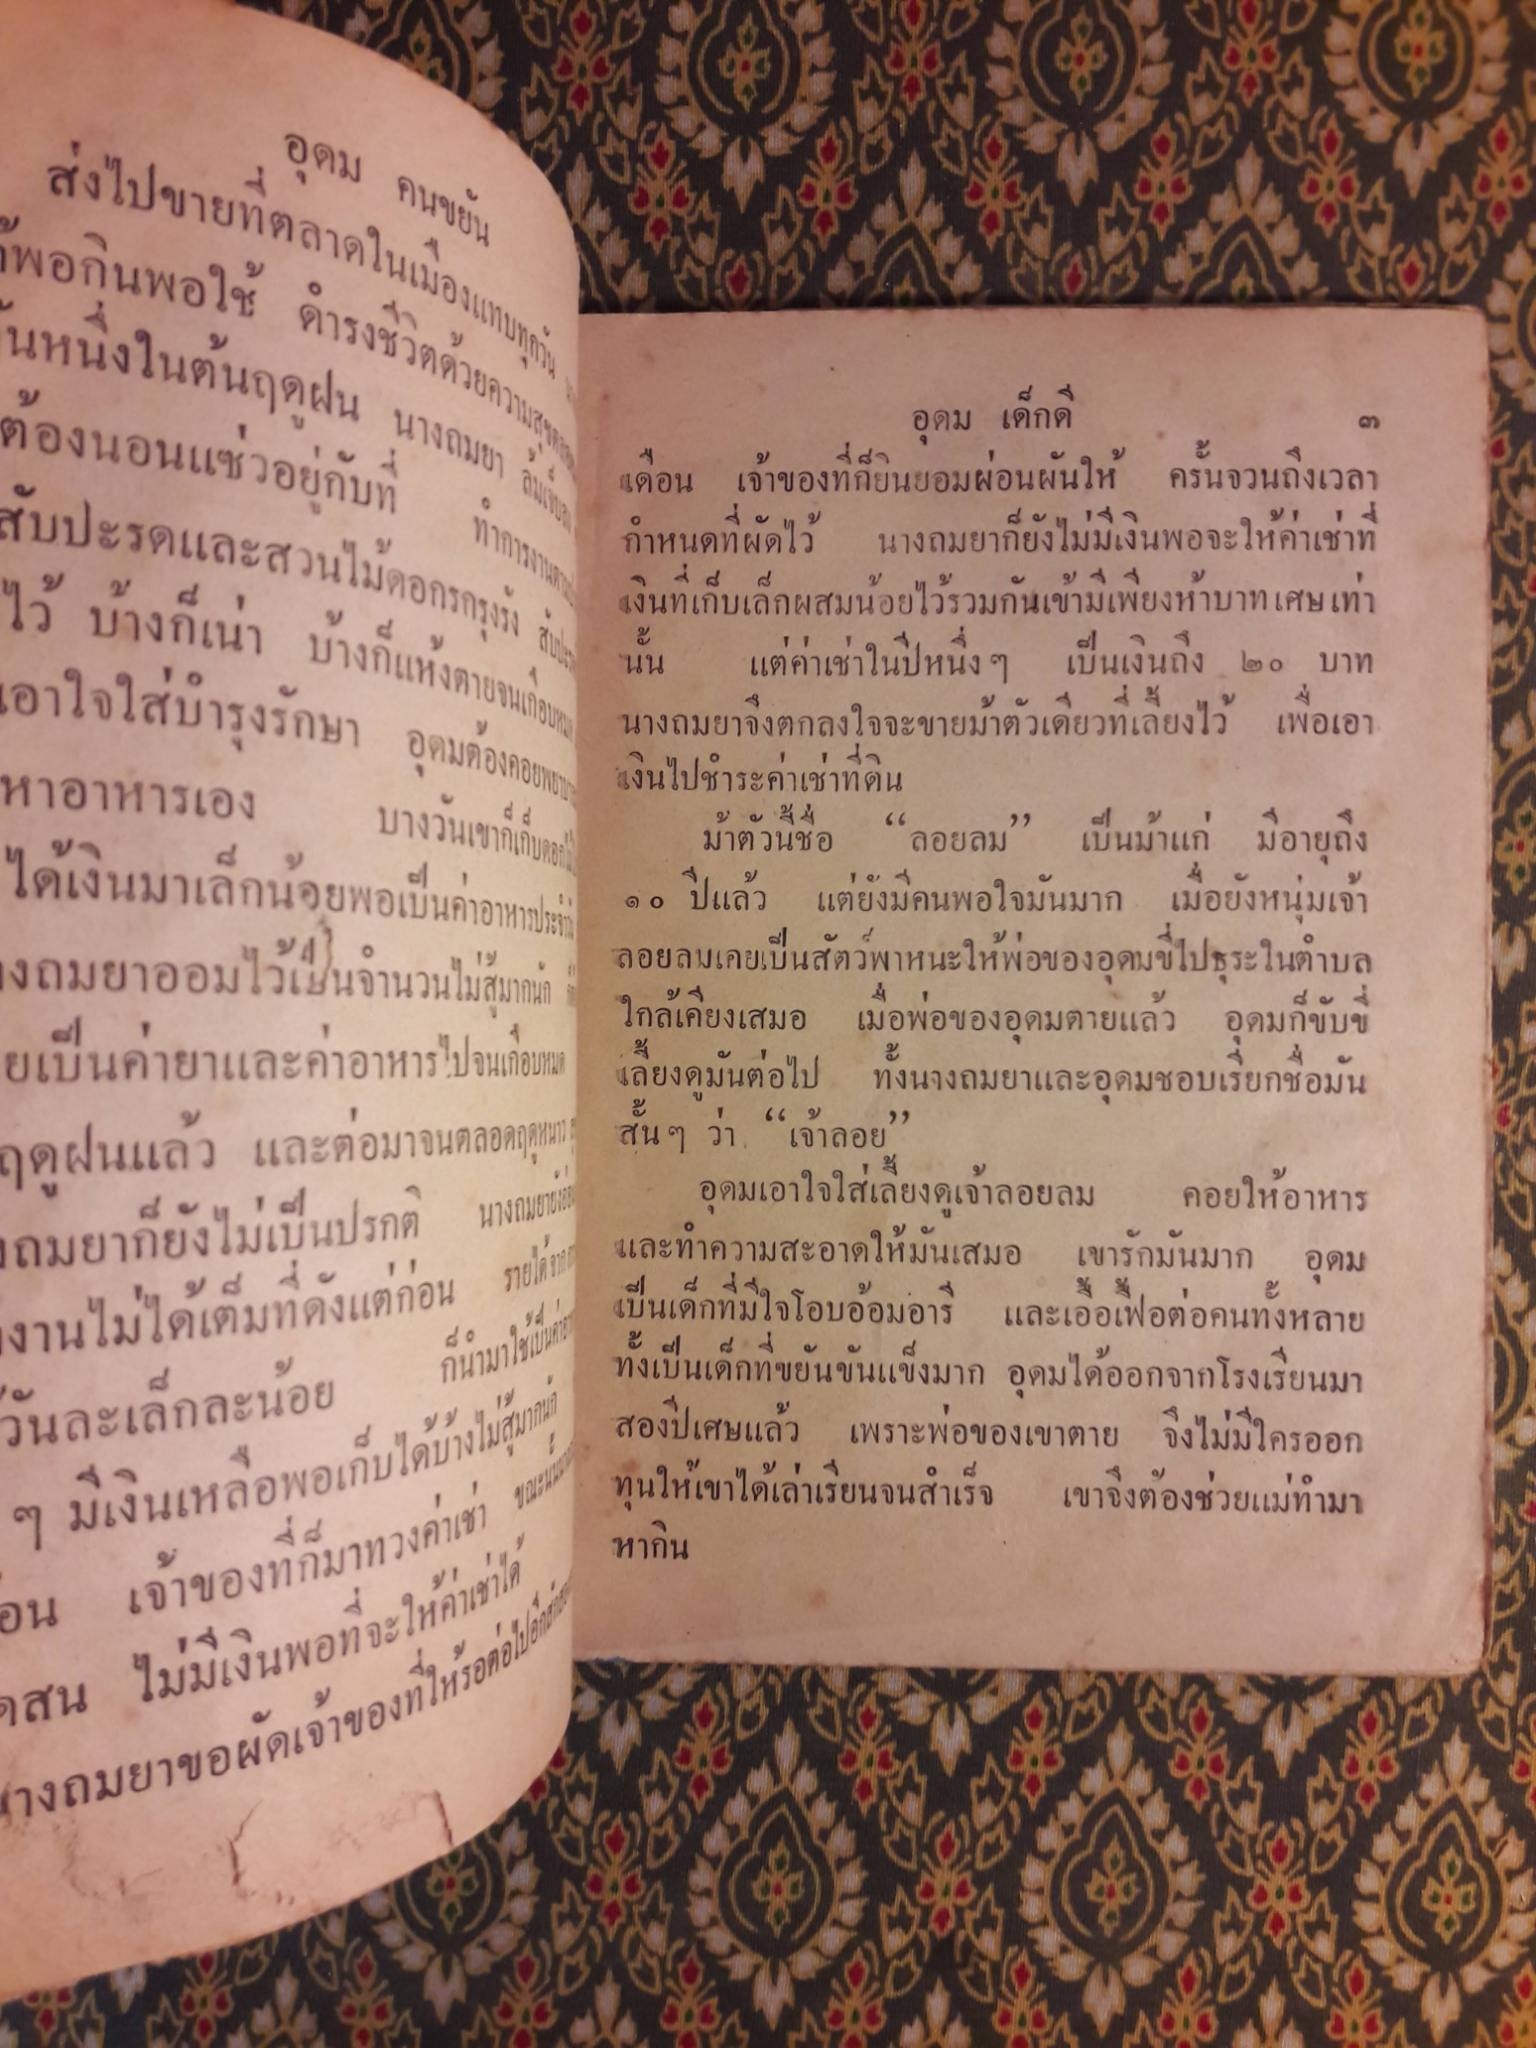 อุดม คนขยัน
ส่งไปขายที่ตลาดในเมืองแทบทุกวัน
พอกินพอใช้ ดำรงชีวิตด้วยความสุข
หนึ่งในต้นฤดูฝน นางถมยา ล้มเจ็บลง
ต้องนอนแซ่วอยู่กับที่ ทำการงาน
สับปะรดและสวนไม้ดอกรกรุงรัง
ไว้ บ้างก็เน่า บ้างก็แห้งตายจนเกือบหมด
เอาใจใส่บำรุงรักษา อุดมต้องคอยพยาบาล
หาอาหารเอง บางวันเขาก็เก็บดอกไม้
ได้เงินมาเล็กน้อยพอเป็นค่าอาหารประจำวัน
ถมยาออมไว้เป็นจำนวนไม่สู้มากนัก
เป็นค่ายาและค่าอาหารไปจนเกือบหมด
ฤดูฝนแล้ว และต่อมาจนตลอดฤดูหนาว
ถมยาก็ยังไม่เป็นปรกติ นางถมยายังอ่อน
งานไม่ได้เต็มที่ดังแต่ก่อน รายได้จาก
วันละเล็กละน้อย ก็นำมาใช้เป็นค่า
ๆ มีเงินเหลือพอเก็บได้บ้างไม่สู้มากนัก
เจ้าของที่ก็มาทวงค่าเช่า ขณะนั้น
ไม่มีเงินพอที่จะให้ค่าเช่าได้
นางถมยาขอผัดเจ้าของที่ให้รอต่อไปอีกสัก
อุดม เด็กดี ๓
เดือน เจ้าของที่ก็ยินยอมผ่อนผันให้ ครั้นจวนถึงเวลา
กำหนดที่ผัดไว้ นางถมยาก็ยังไม่มีเงินพอจะให้ค่าเช่าที่
เงินที่เก็บเล็กผสมน้อยไว้รวมกันเข้ามีเพียงห้าบาทเศษเท่า
นั้น แต่ค่าเช่าในปีหนึ่งๆ เป็นเงินถึง ๒๐ บาท
นางถมยาจึงตกลงใจจะขายม้าตัวเดียวที่เลี้ยงไว้ เพื่อเอา
เงินไปชำระค่าเช่าที่ดิน
ม้าตัวนี้ชื่อ “ลอยลม” เป็นม้าแก่ มีอายุถึง
๑๐ ปีแล้ว แต่ยังมีคนพอใจมันมาก เมื่อยังหนุ่มเจ้า
ลอยลมเคยเป็นสัตว์พาหนะให้พ่อของอุดมขี่ไปธุระในตำบล
ใกล้เคียงเสมอ เมื่อพ่อของอุดมตายแล้ว อุดมก็ขับขี่
เลี้ยงดูมันต่อไป ทั้งนางถมยาและอุดมชอบเรียกชื่อมัน
สั้นๆ ว่า “เจ้าลอย”
อุดมเอาใจใส่เลี้ยงดูเจ้าลอยลม คอยให้อาหาร
และทำความสะอาดให้มันเสมอ เขารักมันมาก อุดม
เป็นเด็กที่มีใจโอบอ้อมอารี และเอื้อเฟื้อต่อคนทั้งหลาย
ทั้งเป็นเด็กที่ขยันขันแข็งมาก อุดมได้ออกจากโรงเรียนมา
สองปีเศษแล้ว เพราะพ่อของเขาตาย จึงไม่มีใครออก
ทุนให้เขาได้เล่าเรียนจนสำเร็จ เขาจึงต้องช่วยแม่ทำมา
หากิน